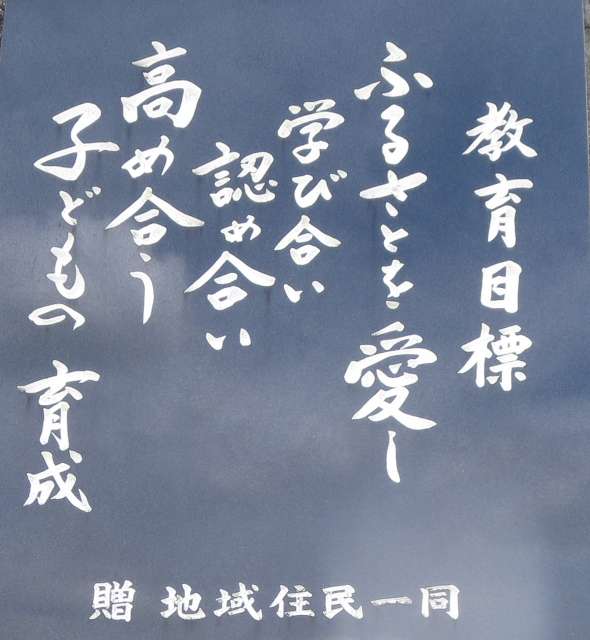 教育目標
ふるさとを愛し
学び合い
認め合い
高め合う
子どもの育成
贈 地域住民一同